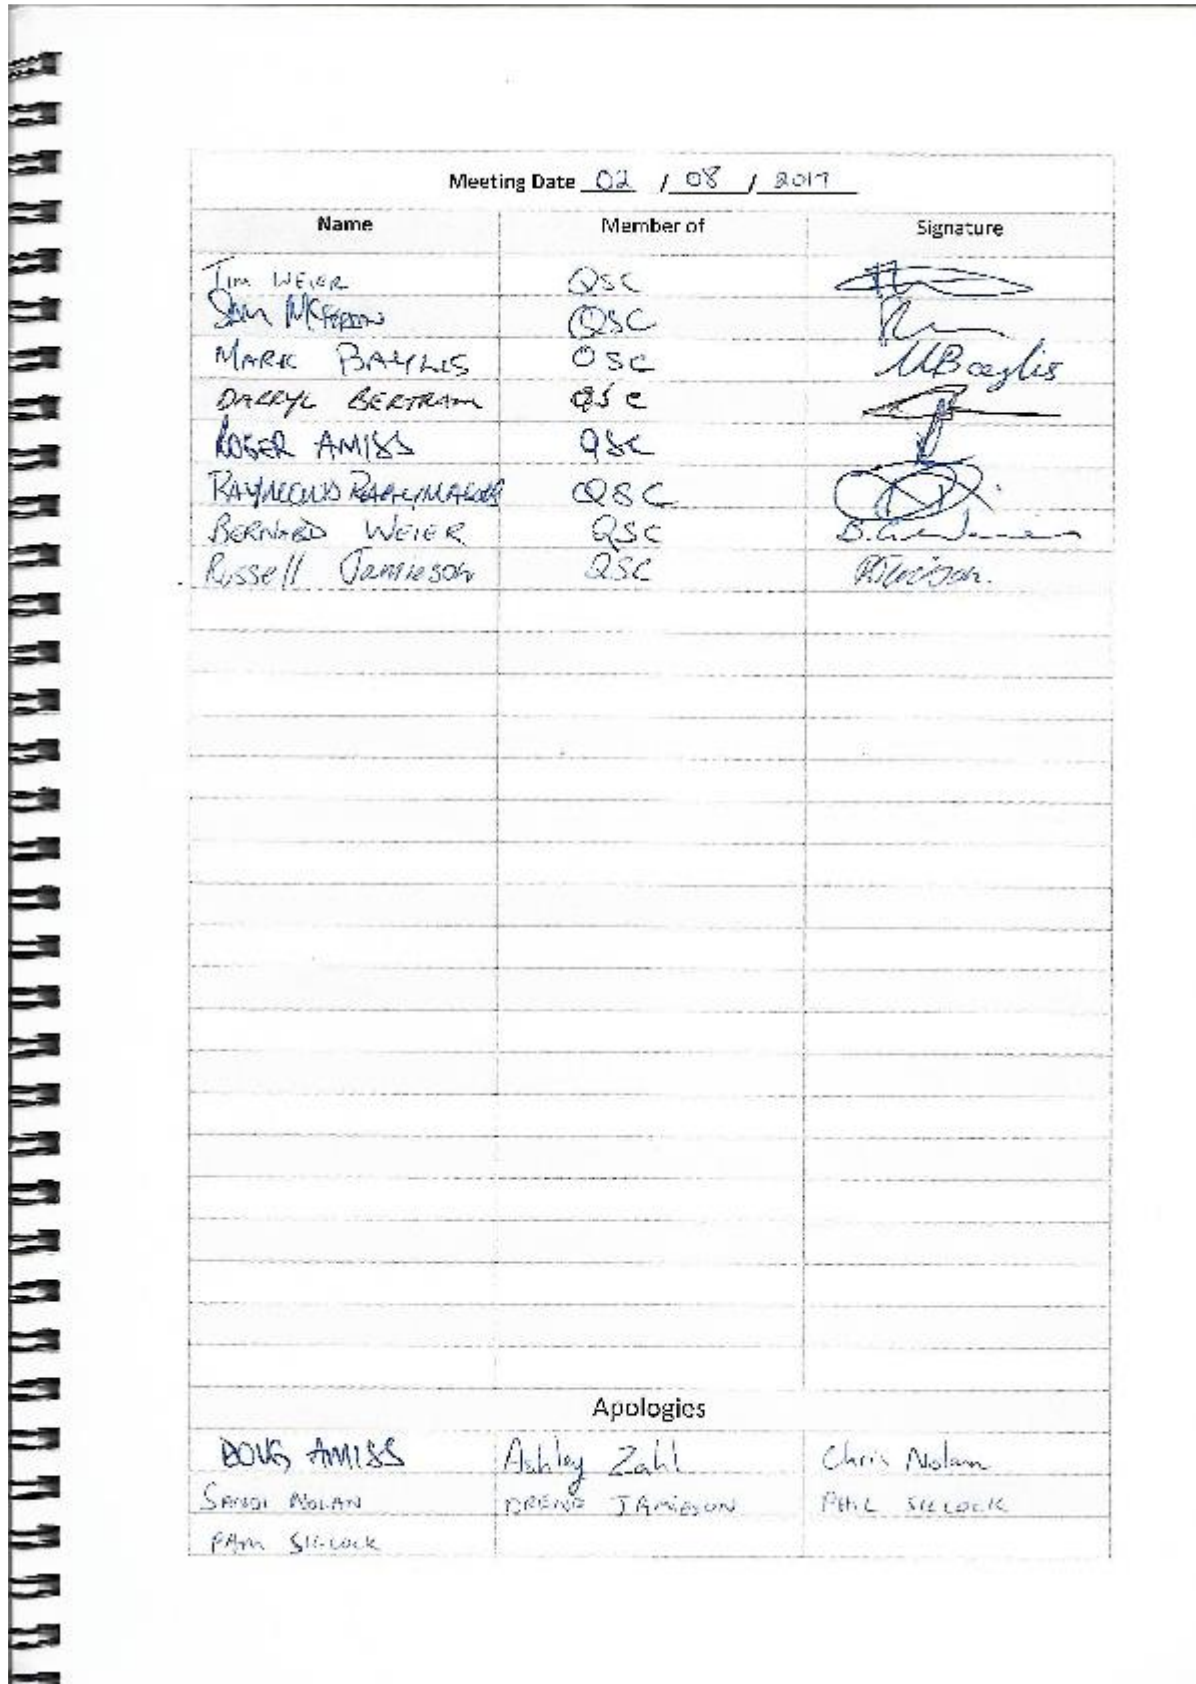 Meeting Date 02 / 08 / 2017
Name Member of Signature
Tim WEIER QSC
SAM QSC
MARK BAYLIS QSC MBaylis
DARRYL BERTRAM QSC
ROGER AMISS QSC
QSC
BERNARD WEIER QSC
Russell Jamieson QSC
Apologies
DOUG AMISS Ashley Zahl Chris Nolan
SANDI NOLAN JAMIESON PHIL SILCOCK
PAM SILCOCK